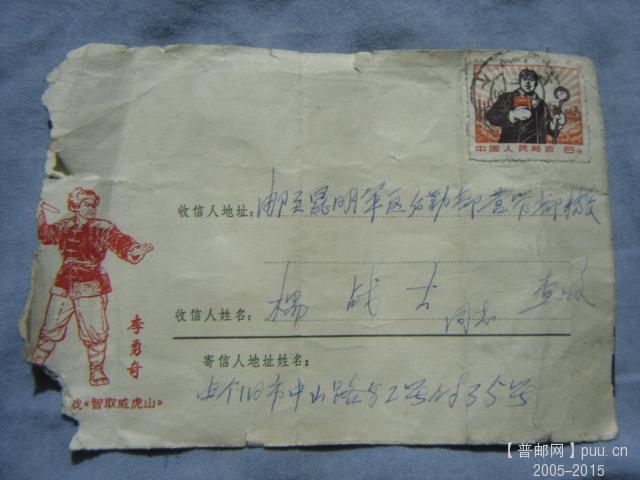 中国人民邮政 8分
收信人地址: 邮至昆明军区后勤部营管部转交
收信人姓名: 杨战士同志 查收
李勇奇
寄信人地址姓名:
戏《智取威虎山》
由个旧市中山路52号付35号
【普邮网】puu.cn
2005-2015